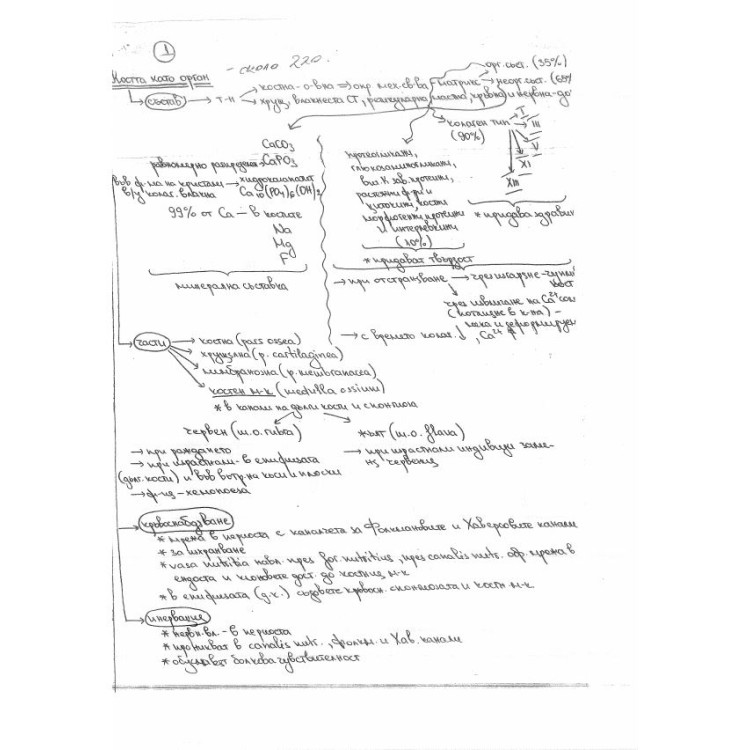 1
– около 220.
Костта като орган
състав → т-ни → костна – о-вна ⇒ опр. мех. св-ва – матрикс → орг. съст. (35%)
→ неорг. съст. (65%
→ хрущ., влакнеста СТ, ретикуларна, мастна, кръвна и нервна-до
колаген тип → I
(90%) → III
V
XI
XIII
* придава здравин
CaCO3
равномерно разпределен CaPO3
във ф-ма на кристали → хидроксиапатит
в/у колаг. влакна Ca10(PO4)6(OH)2
99% от Ca – в костите
Na
Mg
F
минерална съставка
протеогликани,
глюкозаминогликани,
вит. K зав. протеини,
растежни ф-ри и
цитокини, кости
морфогенни протеини
и интерлевкини
(10%)
* придават твърдост
→ при отстраняване → чрез изгаряне –
чрез извличане на Ca2+ сол
(потапяне в к-на) –
мека и деформируем
→ с времето колаг. ↓, Ca2+ ↑
части → костна (pars ossea)
→ хрущялна (p. cartilaginea)
→ мембранозна (p. membranacea)
→ костен м-к (medulla ossium)
* в канали на дълги кости и спонгиоза
червен (m.o. rubra)
→ при раждането
→ при израстнали – в епифизата
(дълг. кости) и във вътр. на къси и плоски
→ ф-ия – хемопоеза
жълт (m.o. flava)
→ при израстнали индивиди заме-
ня червения
кръвоснабдяване
* мрежа в периоста с каналчета за Фолкмановите и Хаверсовите канали
* за изхранване
* vasa nutritia навл. през for. nutritius, през canalis nutr. обр. мрежа в
ендоста и клоновете дост. до костния м-к
* в епифизата (д.к.) съдовете кръвосн. спонгиозата и костн. м-к
инервация
* нервн. вл. – в периоста
* проникват в canalis nutr., фолкм. и Хав. канали
* обуславят болкова чувствителност